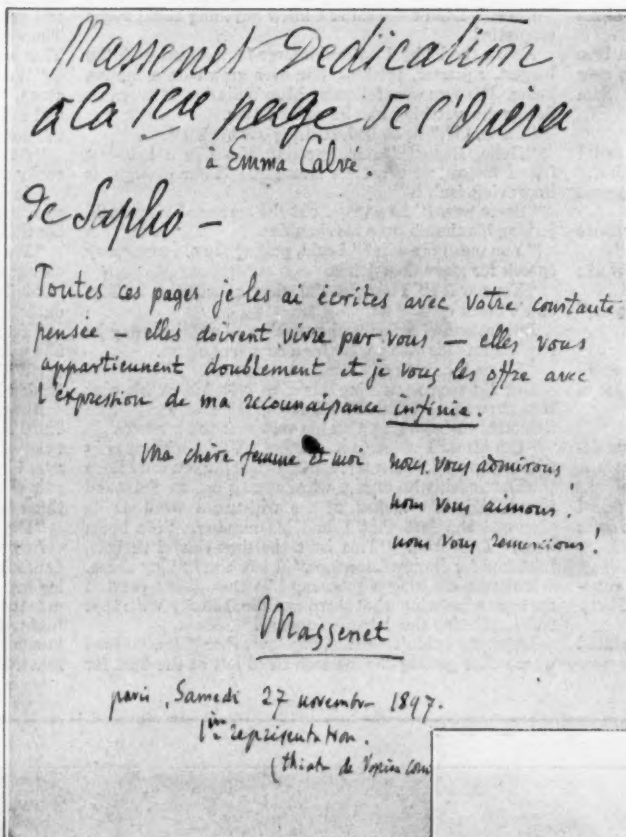 Massenet Dedication
a la 1ere page de l'Opéra
à Emma Calvé.
de Sapho –
Toutes ces pages je les ai écrites avec votre constante
pensée – elles doivent vivre par vous – elles vous
appartiennent doublement et je vous les offre avec
l'expression de ma reconnaissance infinie.
Ma chère femme et moi nous vous admirons
nous vous aimons !
nous vous remercions !
Massenet
paris, Samedi 27 novembre 1897.
1ère représentation.
(théatre de l'opéra com